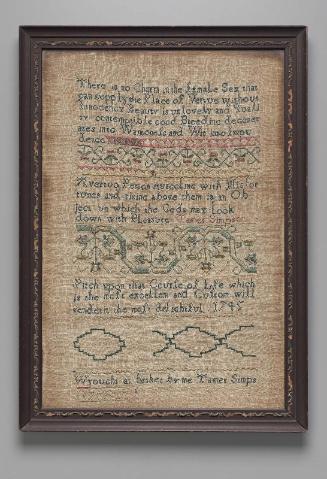 There is no Charm in the female Sex that
can supply the Place of Vertue without
Innocency Beauty is unlovely and Quali
ty contemptible Good Breeding degener
ates into Wantoness and Wit into Impu
dence
A vertuo Person Strugling with Misfor
tunes and rising above them is an Ob
ject on which the Gods may Look
down with Pleasure James Simpso
Pitch upon that Course of Life which
is the most excellent and Custom will
render it the most delightful 1745
Wrought at by me James Simps